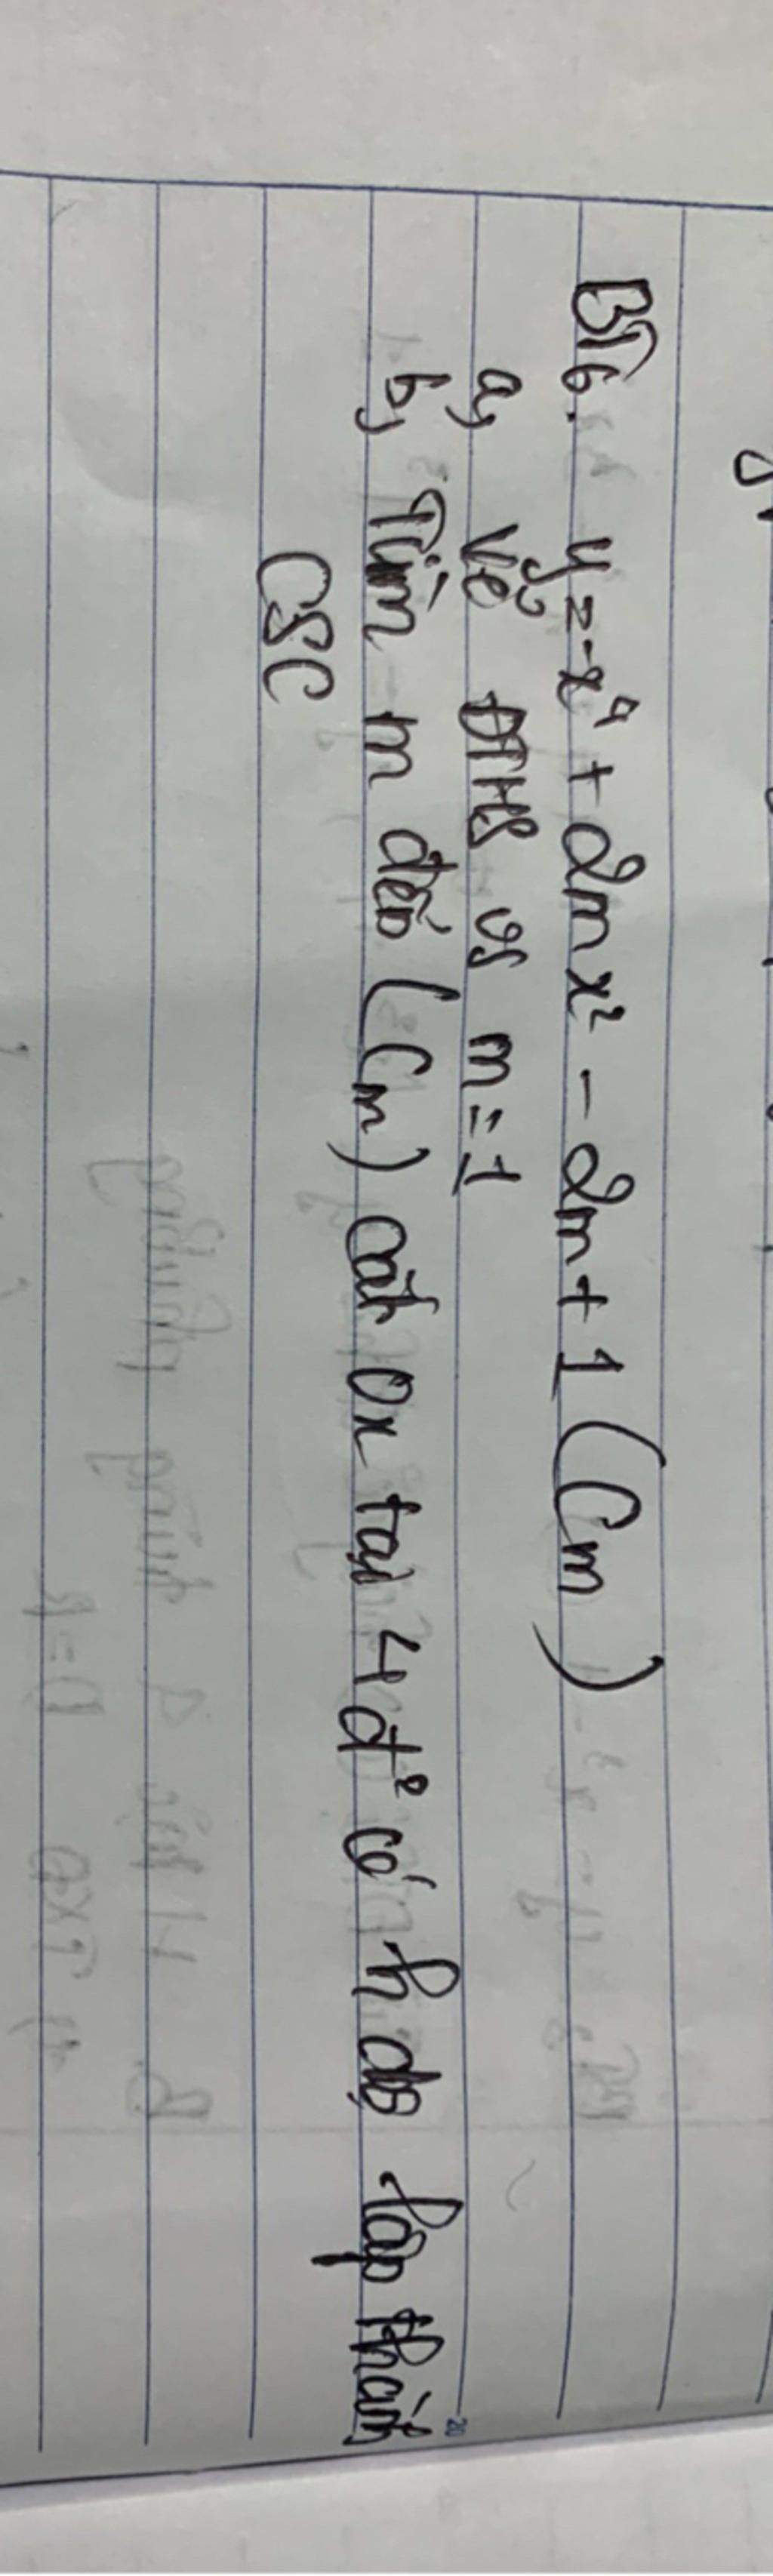 BT6. y = -x⁴ + 2mx² - 2m + 1 (Cm)
a, Vẽ ĐTHS vs m = 1
b, Tìm m để (Cm) cắt Ox tại 4 đ² có h độ lập thành
CSC